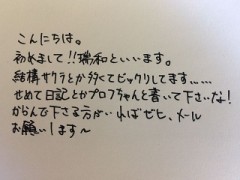 こんにちは。
初めまして!!瑞和といいます。
結構サクラとか多くてビックリしてます……
せめて日記とかプロフちゃんと書いて下さいな!
からんで下さる方がいればゼヒ、メール
お願いします～